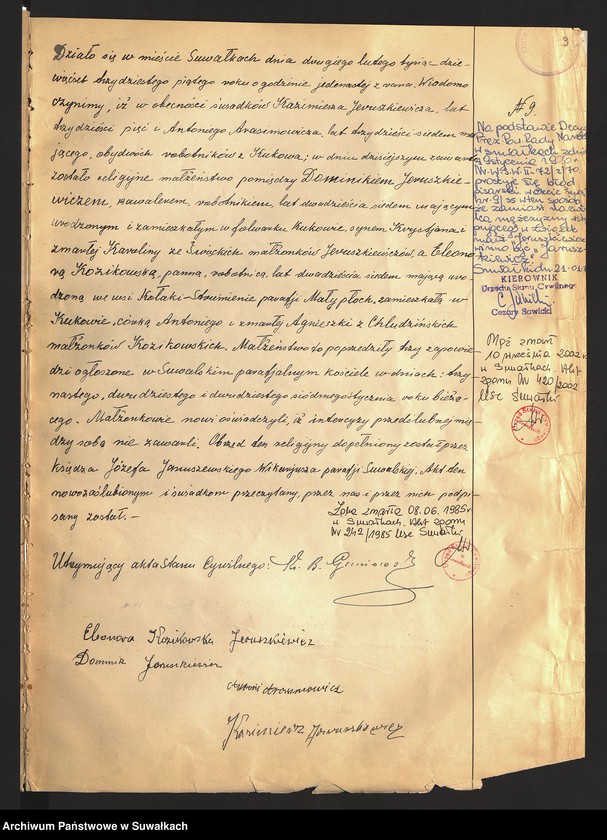 Działo się w mieście Suwałkach dnia drugiego lutego tysiąc dzie-
więćset trzydziestego piątego roku o godzinie jedenastej z rana. Wiadomo
czynimy, iż w obecności świadków Kazimierza Jeruszkiewicza, lat
trzydzieści pięć i Antoniego Arasimowicza, lat trzydzieści siedem ma-
jącego, obydwóch robotników z Kukowa; w dniu dzisiejszym zawarte
zostało religijne małżeństwo pomiędzy Dominikiem Jeruszkie-
wiczem, kawalerem, robotnikiem, lat dwadzieścia siedem mającym
urodzonym i zamieszkałym w folwarku Kukowie, synem Krystjana i
zmarłej Karoliny ze Swockich małżonków Jeruszkiewiczów, a Eleono-
rą Kozikowską, panną, robotnicą, lat dwadzieścia siedem mającą uro-
dzoną we wsi Kołaki-Strumienie parafji Mały płock, zamieszkałą w
Kukowie, córką Antoniego i zmarłej Agnieszki z Chludzińskich
małżonków Kozikowskich. Małżeństwo to poprzedziły trzy zapowie-
dzi ogłoszone w Suwalskim parafjalnym kościele w dniach: trzy-
nastego, dwudziestego i dwudziestego siódmego stycznia roku bieżą-
cego. Małżonkowie nowi oświadczyli, iż intercyzy przedślubnej mię-
dzy sobą nie zawarli. Obrzęd ten religijny dopełniony został przez
Księdza Józefa Januszewskiego Wikarjusza parafji Suwalskiej. Akt ten
nowozaślubionym i świadkom przeczytany, przez nas i przez nich podpi-
sany został. –
Żona zmarła 08.06.1985r
w Suwałkach. Akt zgonu
Nr 242/1985 Usc Suwałki
Utrzymujący akta Stanu Cywilnego: Ks. B.
Eleonora Kozikowska Jeruszkiewicz
Dominik Jaruszkiewicz
Antoni Arasimowicz
Kazimierz
9
№ 9.
Na podstawie Decyzji
Prez. Pow. Rady Narod.
w Suwałkach z dnia
stycznia 1970r.
prostuje się błąd
pisarski w akcie
nr. 9 w ten sposób
że zamiast nazwiska
mężczyzny
pującego w związek
winno być
Suwałki dn. 21.01.
KIEROWNIK
Urzędu Stanu Cywilnego
Cezary Sawicki
Mąż zmarł
10 września 2002 r.
w Suwałkach. Akt
zgonu Nr 420/2002
Usc Suwałki
Archiwum Państwowe w Suwałkach